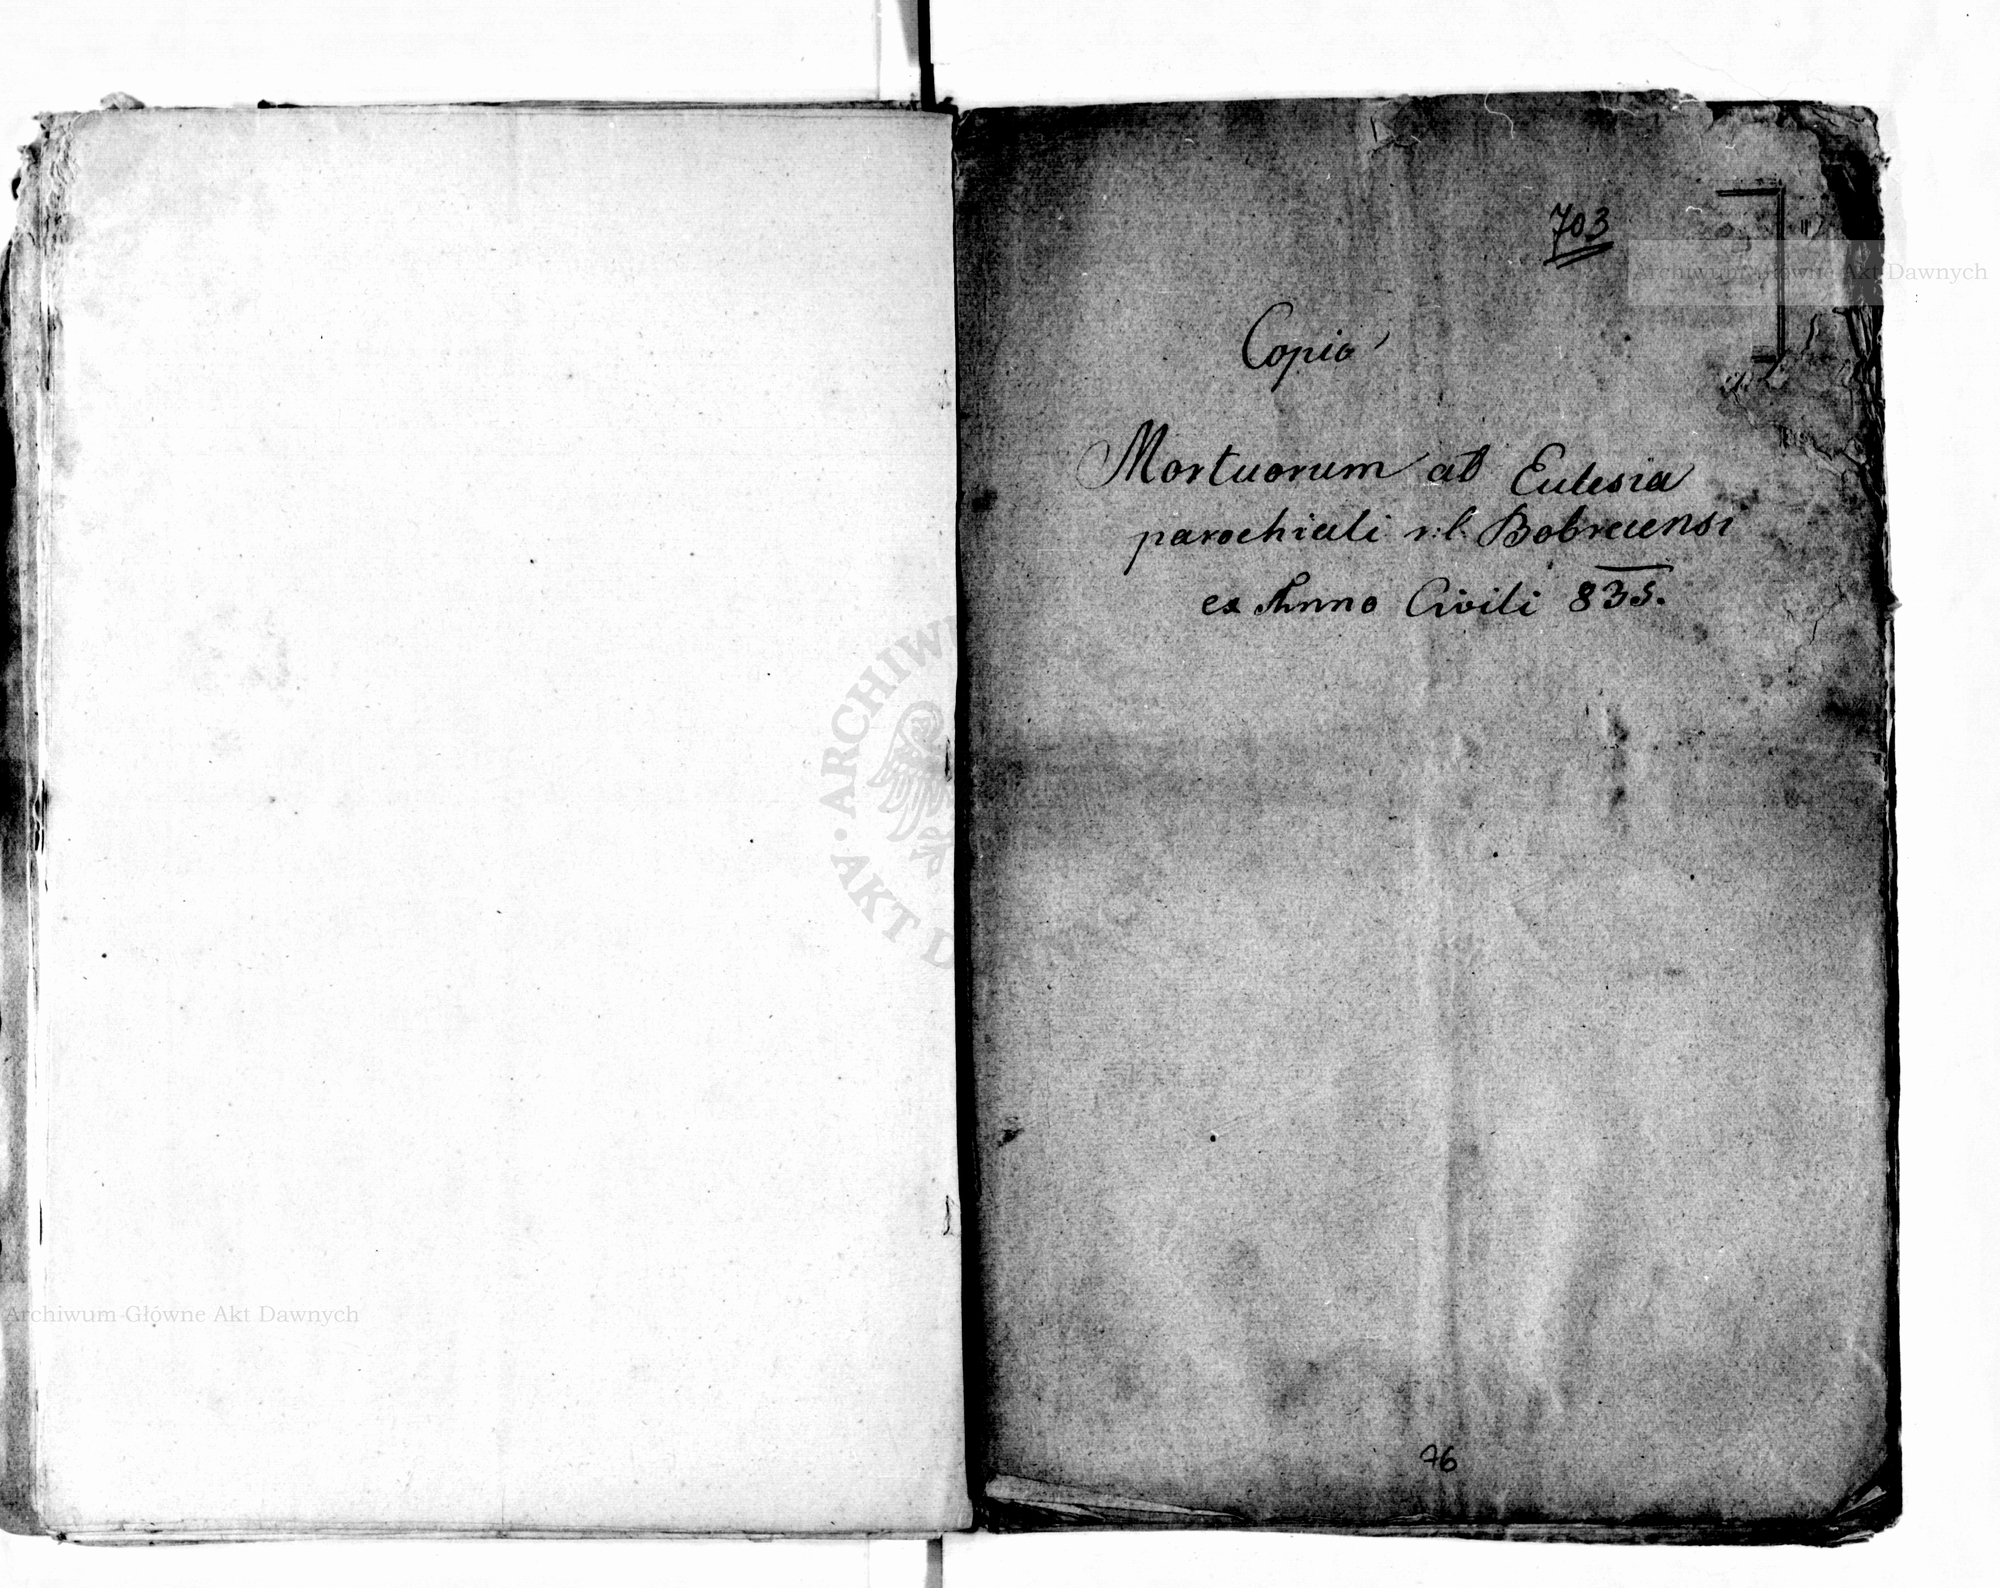 703
Copia
Mortuorum ab Eclesia
parochiali r:l. Bobrecensi
ex Anno Civili 835.
76
Archiwum Główne Akt Dawnych
Archiwum Główne Akt Dawnych
ARCHIWUM
AKT D